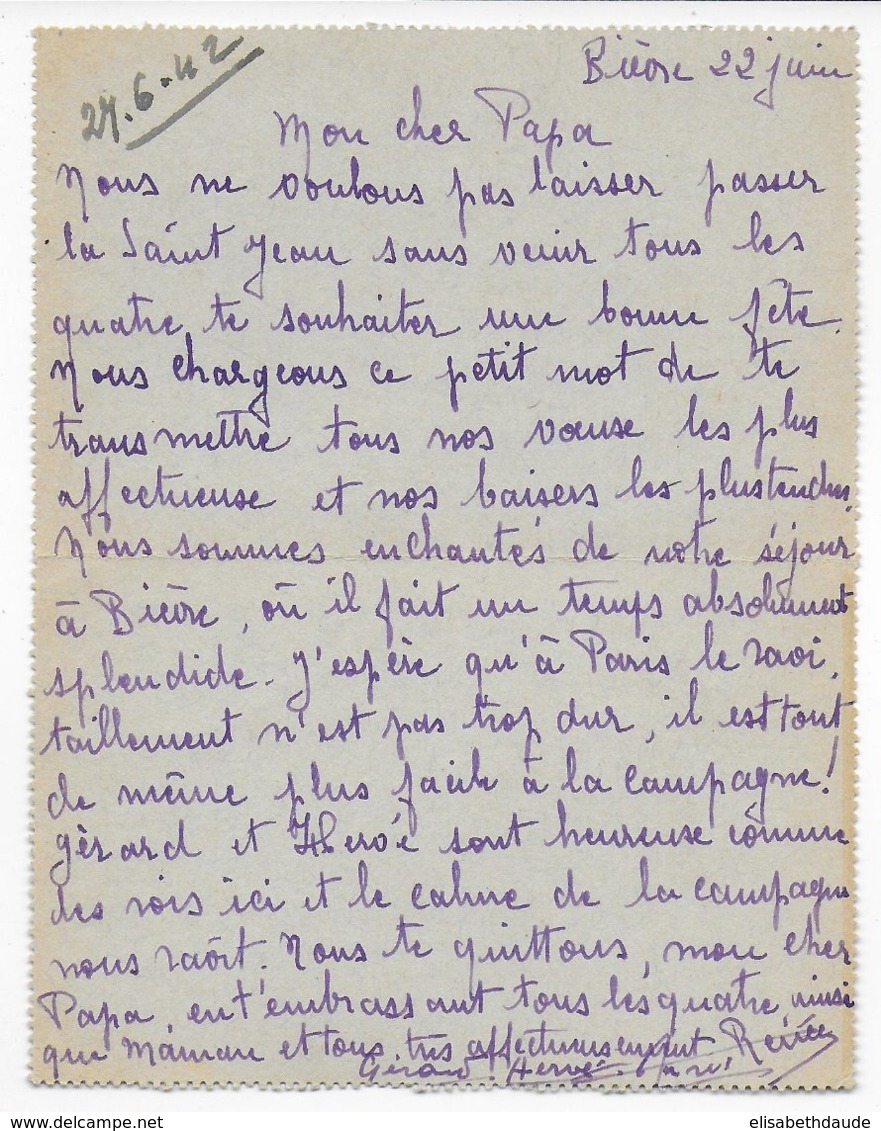 27.6.42
Bièvre 22 juin
Mon cher Papa
Nous ne voulons pas laisser passer
la Saint Jean sans venir tous les
quatre te souhaiter une bonne fête.
Nous chargeons ce petit mot de te
transmettre tous nos voeuse les plus
affectueuse et nos baisers les plus tendres.
Nous sommes enchantés de notre séjour
à Bièvre, où il fait un temps absolument
splendide. J'espère qu'à Paris le ravi,
taillement n'est pas trop dur, il est tout
de même plus facile à la campagne!
Gérard et Hervé sont heureuse comme
des rois ici et le calme de la campagne
nous ravit. Nous te quittons, mon cher
Papa, en t'embrassant tous les quatre, ainsi
que Maman et tous, très affectueusement Renée
Gérard. Hervé.
elisabethdaude